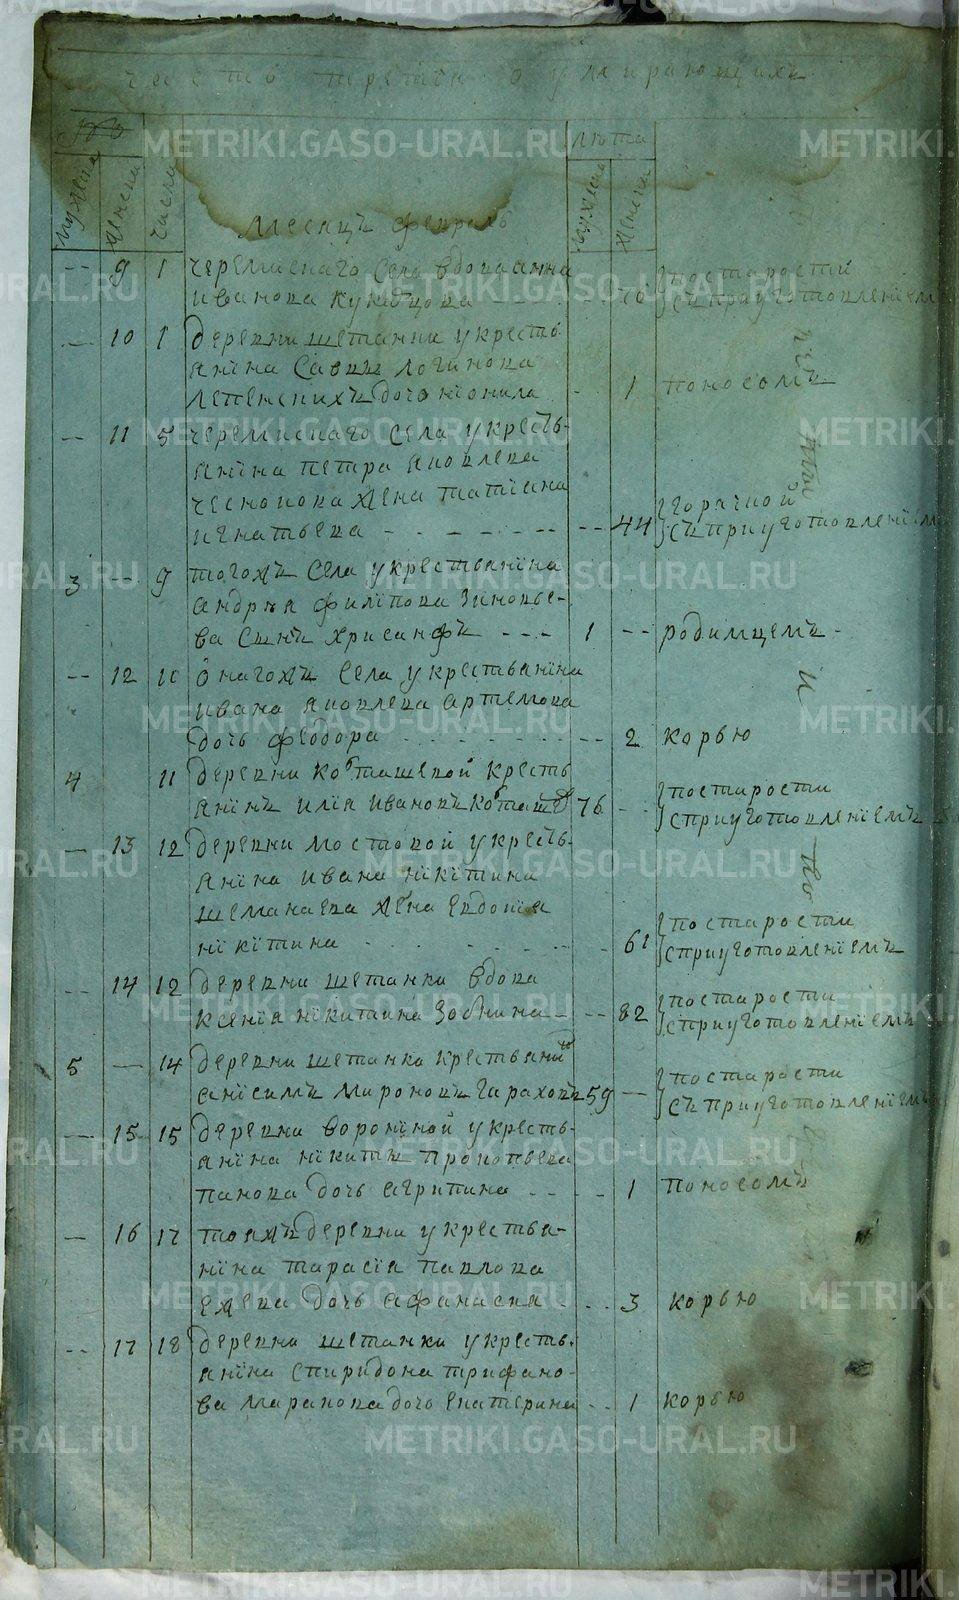 часть третьія о умирающихъ
№
лѣта
мужеска
женска
числа
мужеска
женска
Месяцъ февраль
-- 9 1 черемискаго села вдова анна
иванова кукарцова ---- 70 постарости
съ приуготовлениемъ
-- 10 1 деревни щетанки укресть
янина Савы логинова
Лепенскихъ дочь нионила - 1 поносомъ
-- 11 5 черемискаго села укресть-
янина петра яковлева
чеснокова жена татиана
игнатьева - - - - - - -- 44 горячкой
съ приуготовленіемъ
3 -- 9 тогожъ села укрестьянина
андрѣя филіпова зиновье-
ва сынъ хрисанфъ --- 1 -- родимцемъ -
-- 12 10 онагожъ села укрестьянина
ивана яковлева артемова
дочь феодора - - - - - -- 2 корью
4 11 деревни кокташевой кресть
янинъ илія ивановъ кокташев 76 - постарости
сприуготовленіемъ
-- 13 12 деревни мостовой укресть-
янина ивана нікітина
шеманаева жена евдокія
нікітина - - - - 61 постарости
сприуготовленіемъ
-- 14 12 деревни щетанки вдова
ксенія нікитина зобнина - -- 82 постарости
сприуготовленіемъ
5 -- 14 деревни щетанки крестьянинъ
анісимъ мироновъ гараховъ 59 -- постарости
съ приуготовленіемъ
-- 15 15 деревни вороніной укресть-
яніна нікиты прокопьева
панова дочь агрипина - - - 1 поносомъ
-- 16 17 тояжъ деревни укрестья-
нина тарасія павлова
ежева дочь афанасия - - - 3 корью
-- 17 18 деревни щетанки укресть-
яніна спиридона трифано-
ва маракова дочь екатерина - - 1 корью
METRIKI.GASO-URAL.RU